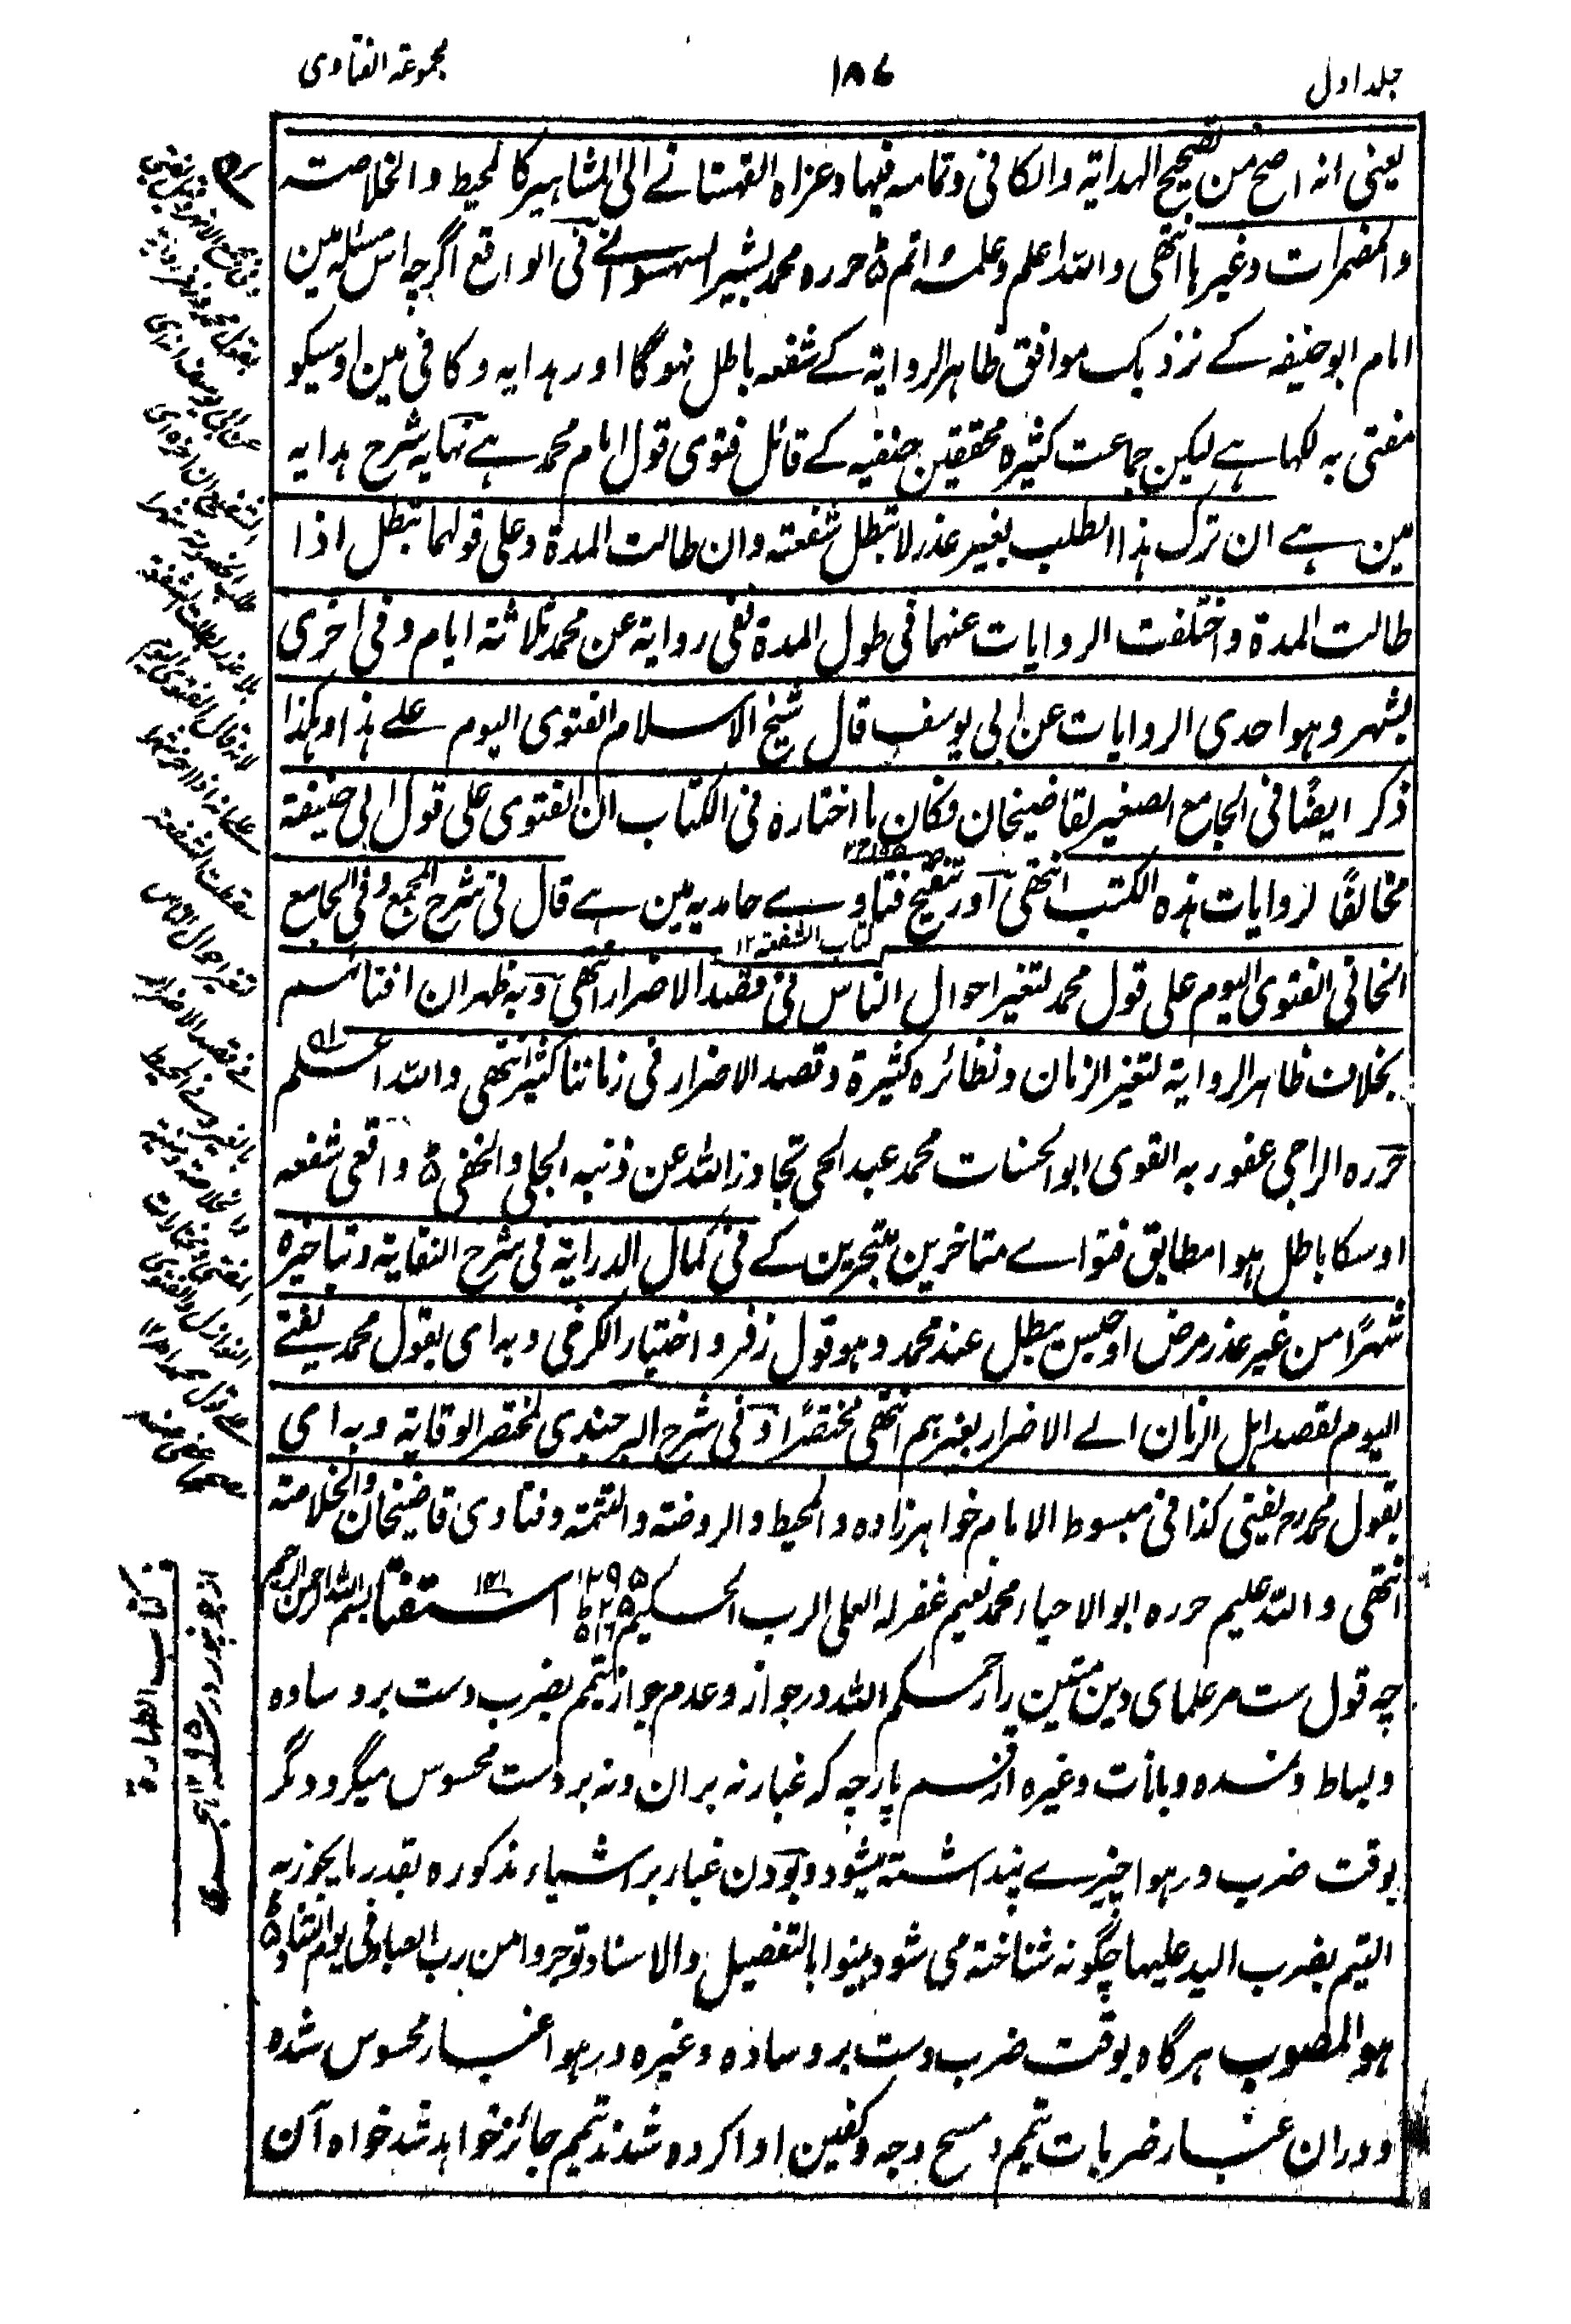 جلد اول
۱۸۷
مجموعۃ الفتاوی
یعنی انہ اصح من تصحیح الہدایۃ والکافی وتمامہ فیہا وعزاہ القہستانے الی المشاہیر کالمحیط والخلاصتہ
والمضمرات وغیرہا انتھی واللہ اعلم وعلمہ اتم ۵ حررہ محمد بشیر السہسوانے فی الواقع اگرچہ اس مسئلہ مین
امام ابو حنیفہ کے نزدیک موافق ظاہر الروایۃ کے شفعہ باطل نہوگا اور ہدایہ وکافی مین اوسیکو
مفتی بہ لکہا ہے لیکن جماعت کثیرہ محققین حنفیہ کے قائل فتوی قول امام محمد ہے نہایہ شرح ہدایہ
مین ہے ان ترک ہذا الطلب بغیر عذر لا تبطل شفعتہ وان طالت المدۃ وعلی قولہما تبطل اذا
طالت المدۃ واختلفت الروایات عنہما فی طول المدۃ ففی روایۃ عن محمد ثلاثۃ ایام وفی اخری
بشہر وہو احدی الروایات عن ابی یوسف قال شیخ الاسلام الفتوی الیوم علے ہذا وہکذا
ذکر ایضًا فی الجامع الصغیر لقاضیخان فکان ما اختارہ فی الکتاب ان الفتوی علی قول ابی حنیفۃ
مخالفًا لروایات ہذہ الکتب انتھی اور تنقیح فتاوے حامدیہ مین ہے قال فی شرح المجمع وفی الجامع
کتاب الشفعۃ ۱۲
الخانی الفتوی الیوم علی قول محمد لتغیر احوال الناس فی قصد الاضرار انتھی وبہ ظہر ان افتائہم
بخلاف ظاہر الروایۃ لتغیر الزمان ونظائرہ کثیرۃ وقصد الاضرار فی زماننا کثیر انتھی واللہ اعلم
حررہ الراجی عفو ربہ القوی ابو الحسنات محمد عبد الحی تجاوز اللہ عن ذنبہ الجلی والخفی ۵ واقعی شفعہ
اوسکا باطل ہوا مطابق فتواے متاخرین متبحرین کے فی کمال الدرایۃ فی شرح النقایۃ وبتاخیرہ
شہرًا من غیر عذر مرض او حبس یبطل عند محمد وہو قول زفر واختیار الکرخی وبہ ای بقول محمد یفتے
الیوم لقصد اہل الزمان الے الاضرار بغیرہم انتھی مختصرًا وفی شرح البرجندی لمختصر الوقایۃ وبہ ای
بقول محمدرح یفتی کذا فی مبسوط الامام خواہرزادہ والمحیط والروضۃ والتتمتہ وفتاوی قاضیخان والخلاصتہ
انتھی واللہ علیم حررہ ابو الاحیاء محمد نعیم غفر لہ العلی الرب الحکیم ۱۲۹۵ استفتا بسم اللہ الرحمن الرحیم
چہ قول ست مر علمای دین متین را رحمکم اللہ در جواز وعدم جواز تیمم بضرب دست بر وسادہ
وبساط ومسندہ وبانات وغیرہ از قسم پارچہ کہ غبار نہ بران ونہ بر دست محسوس میگردد مگر
بوقت ضرب در ہوا چیزے پنداشتہ میشود وبودن غبار بر اشیاء مذکورہ بقدر ما یجوز بہ
التیمم بضرب الید علیہا چگونہ شناختہ می شود بینوا بالتفصیل والاسناد توجروا من رب العباد فی یوم التناد ۵
ہو المصوب ہرگاہ بوقت ضرب دست بر وسادہ وغیرہ در ہوا غبار محسوس شدہ
ودران غبار ضربات تیمم ومسح وجہ وکفین ادا کردہ شدند تیمم جائز خواہد شد خواہ آن
کتاب الطہارۃ